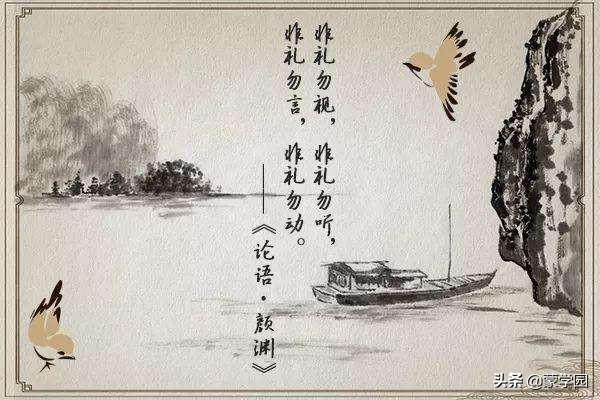 非礼勿视，非礼勿听，
非礼勿言，非礼勿动。
——《论语·颜渊》
头条 @蒙学园